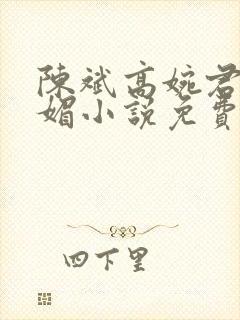 陳斌高婉君
媚小說免費
四下里